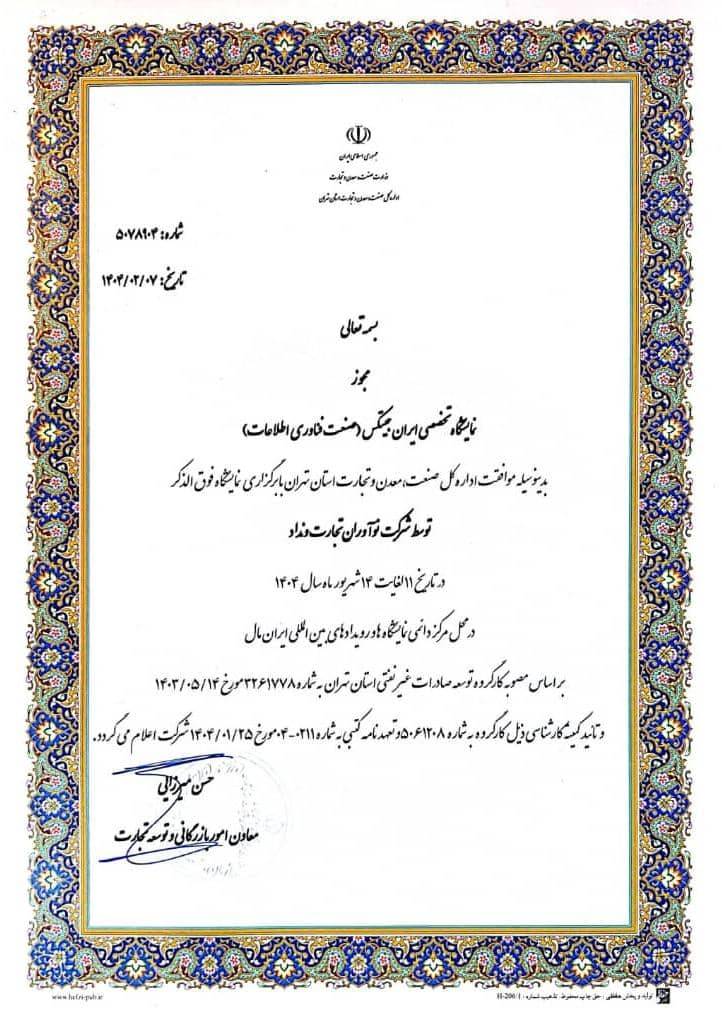 جمهوری اسلامی ایران
وزارت صنعت، معدن و تجارت
اداره کل صنعت، معدن و تجارت استان تهران
شماره: ۵۰۷۸۹۰۴
تاریخ: ۱۴۰۴/۰۲/۰۷
بسمه تعالی
مجوز
نمایشگاه تخصصی ایران جیتکس (صنعت فناوری اطلاعات)
بدینوسیله موافقت اداره کل صنعت، معدن و تجارت استان تهران با برگزاری نمایشگاه فوق الذکر
توسط شرکت نوآوران تجارت ونداد
در تاریخ ۱۱ لغایت ۱۴ شهریور ماه سال ۱۴۰۴
در محل مرکز دائمی نمایشگاه ها و رویدادهای بین المللی ایران مال
بر اساس مصوبه کارگروه توسعه صادرات غیر نفتی استان تهران به شماره ۳۲۶۱۷۷۸ مورخ ۱۴۰۳/۰۵/۱۴
و تائید کمیته کارشناسی ذیل کارگروه به شماره ۵۰۶۱۲۰۸ و تعهد نامه کتبی به شماره ۰۲۱۱-۰۴ مورخ ۱۴۰۴/۰۱/۲۵ شرکت اعلام می گردد.
حسن میرزائی
معاون امور بازرگانی و توسعه تجارت
تولید و پخش حفظی : حق چاپ محفوظ. تذهیب شماره : H-206/1
www.hefzi-pub.ir